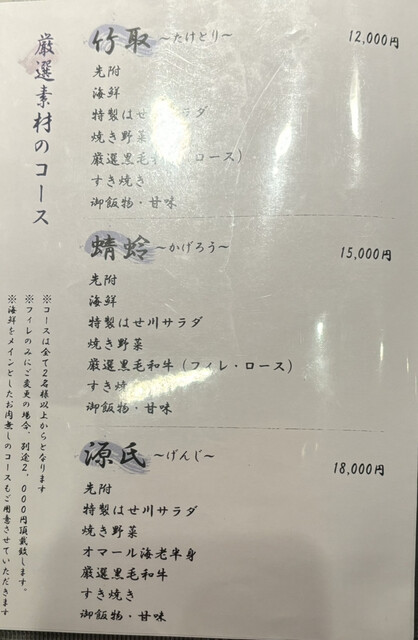 厳選素材のコース
竹取 ~たけとり~ 12,000円
先附
海鮮
特製はせ川サラダ
焼き野菜
厳選黒毛 ロース)
すき焼き
御飯物・甘味
蜻蛉 ~かげろう~ 15,000円
先附
海鮮
特製はせ川サラダ
焼き野菜
厳選黒毛和牛(フィレ・ロース)
すき焼
御飯物・甘味
源氏 ~げんじ~ 18,000円
先附
特製はせ川サラダ
焼き野菜
オマール海老半身
厳選黒毛和牛
すき焼き
御飯物・甘味
※コースは全て2名様以上からとなります
※フィレのみにご変更の場合、別途2,000円頂戴致します。
※海鮮をメインとしたお肉無しのコースもご用意させていただきます